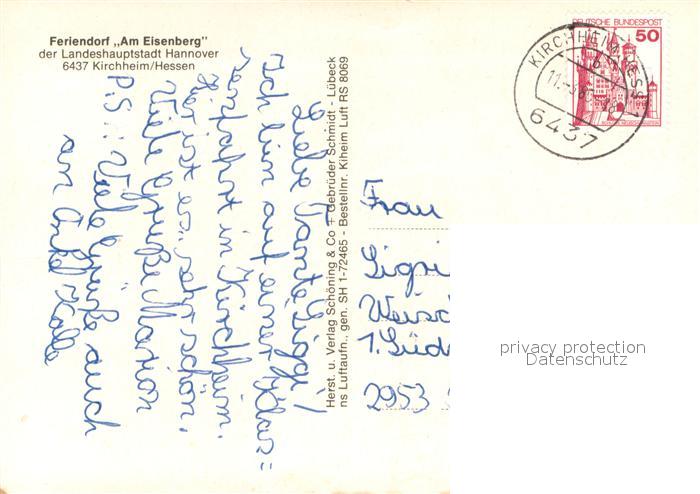 Feriendorf „Am Eisenberg"
der Landeshauptstadt Hannover
6437 Kirchheim/Hessen
Liebe Tante Siggi!
Ich bin auf einer Klas=
senfahrt in Kirchheim.
Hier ist es sehr schön.
Viele Grüße Marion
P.S.: Viele Grüße auch
an Onkel Kalle
Herst. u. Verlag Schöning & Co + Gebrüder Schmidt - Lübeck
ns Luftaufn., gen. SH 1-72465 - Bestellnr. Kiheim Luft RS 8069
DEUTSCHE BUNDESPOST
50
KIRCHHEIM, HESS 1
6437
Frau
Sigri
1. Süd
2953
privacy protection
Datenschutz